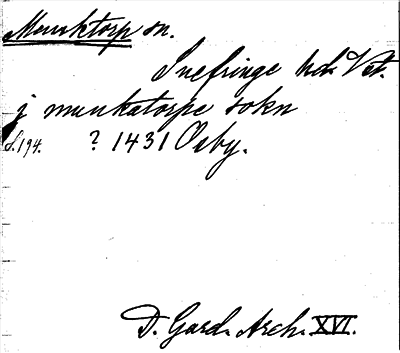 Munktorp sn.
Snefringe hd. Vstm.
j munkatorpe sokn
s. 194. ? 1431 Ôrby.
D. Gard. Arch. XVI.